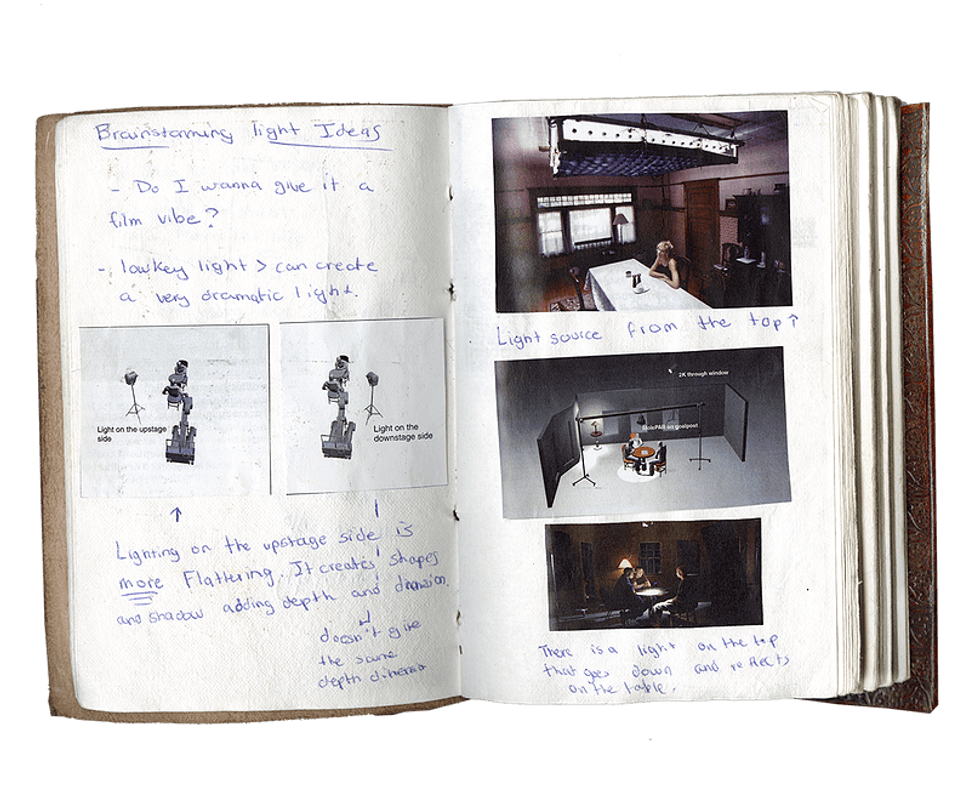 Brainstorming light Ideas
- Do I wanna give it a
film vibe?
- lowkey light > can create
a very dramatic light.
Light on the upstage
side
Light on the
downstage side
↑
Lighting on the upstage side is
more Flattering. It creates shapes
and shadow adding depth and dimension.
doesn't give
the same
depth dimension
Light source from the top ↑
2K through window
MolePAR on goalpost
There is a light on the top
that goes down and reflects
on the table.